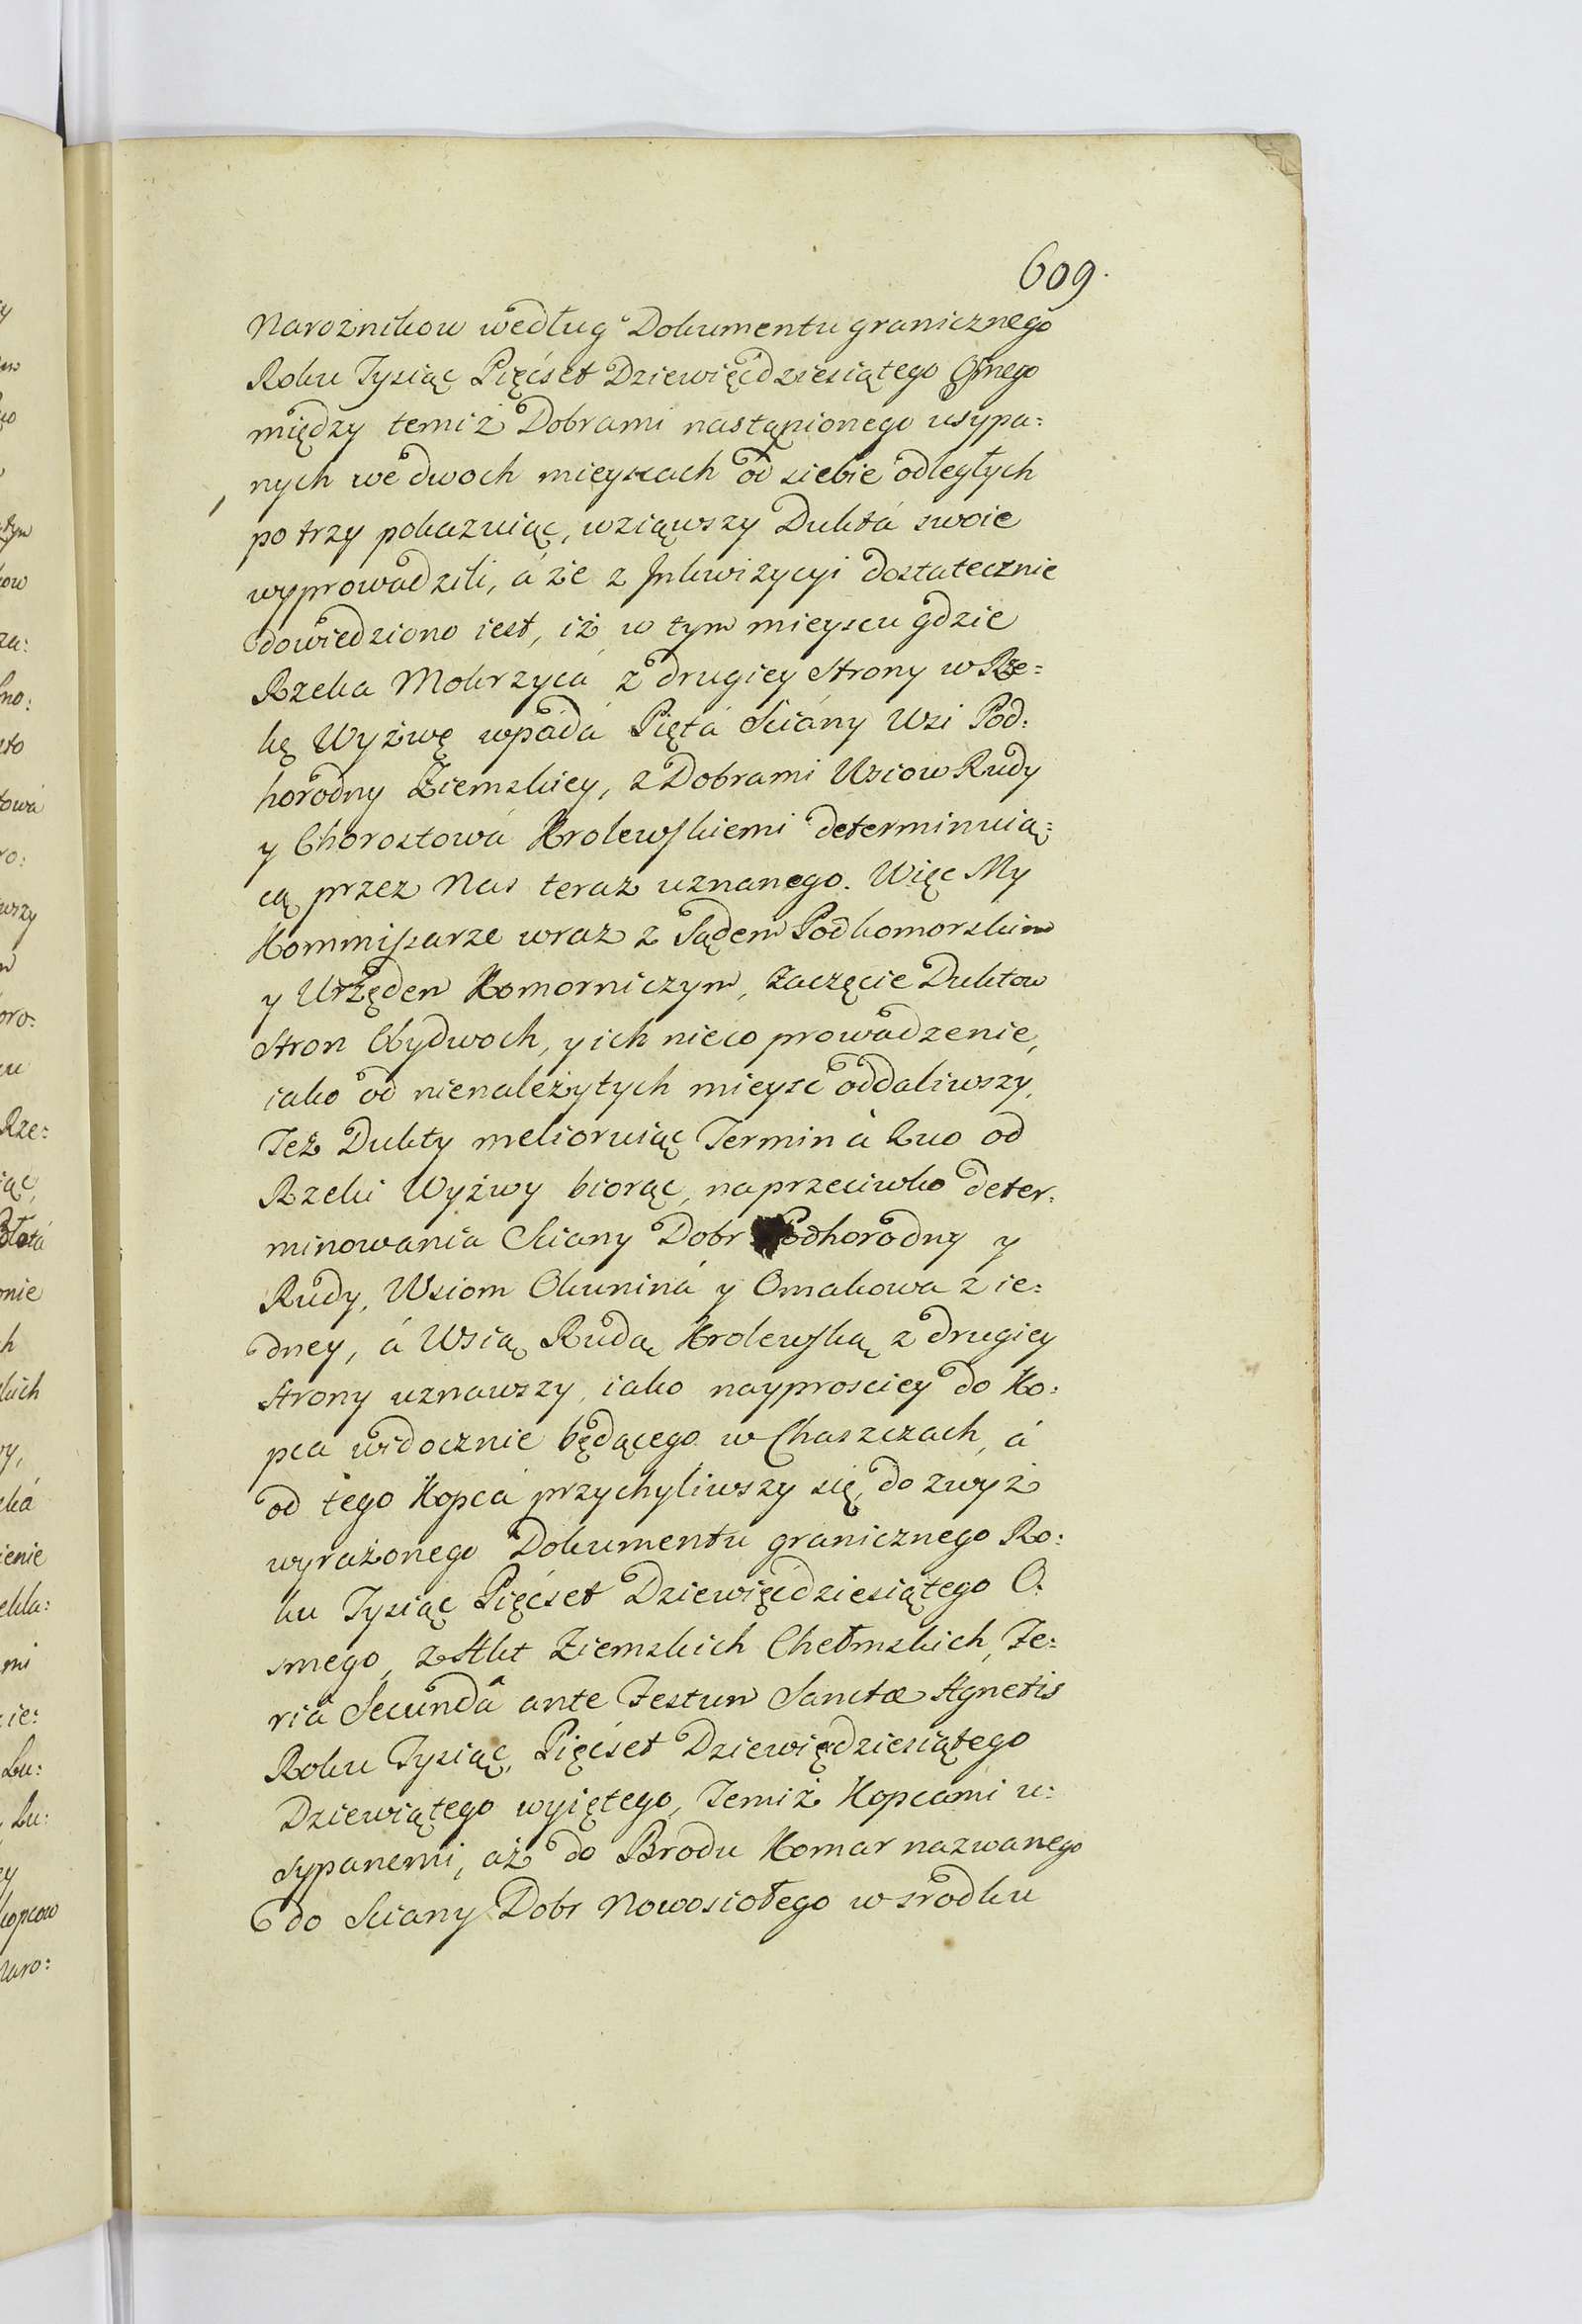 609.
Narożnikow według Dokumentu granicznego
Roku Tysiąc Pięćset Dziewięćdziesiątego Osmego
między temiż Dobrami nastąpionego usypa:
nych we dwoch mieyscach od siebie odległych
po trzy pokazuiąc, wziąwszy Duktá swoie
wyprowadzili, á że z Inkwizycyi dostatecznie
dowiedziono iest, iż w tym mieyscu gdzie
Rzeka Mokrzycá z drugiey strony w Rze:
kę Wyżwę wpádá Piętá Sciány Wsi Pod:
horodny Ziemskiey, z Dobrami Wsiow Rudy
y Chorostowá Krolewskiemi determinuią:
cą przez Nas teraz uznanego. Więc My
Kommissarze wraz z Sądem Podkomorskim
y Urzędem Komorniczym, Zaczęcie Duktow
Stron Obydwoch, y ich nieco prowadzenie,
iako od nienależytych mieysc oddaliwszy,
Też Dukty meliorując Termin à Quo od
Rzeki Wyżwy biorąc, naprzeciwko deter:
minowania Sciany Dobr Podhorodny y
Rudy, Wsiom Okuniná y Omakowa z ie:
dney, á Wsią Rudą Krolewską z drugiey
strony uznawszy, iako nayprosciey do Ko:
pca widocznie będącego w Chaszczach, á
od tego Kopcá przychyliwszy się, do zwyż
wyrażonego Dokumentu granicznego Ro:
ku Tysiąc Pięćset Dziewięćdziesiątego O:
smego, z Akt Ziemskich Chełmskich, Fe:
riâ Secundâ ante Festum Sanctæ Agnetis
Roku Tysiąc, Pięćset Dziewiędziesiątego
Dziewiątego wyiętego, Temiż Kopcami u:
sypanemi, aż do Brodu Komar nazwanego
do Sciany Dobr Nowosiołego w srodku